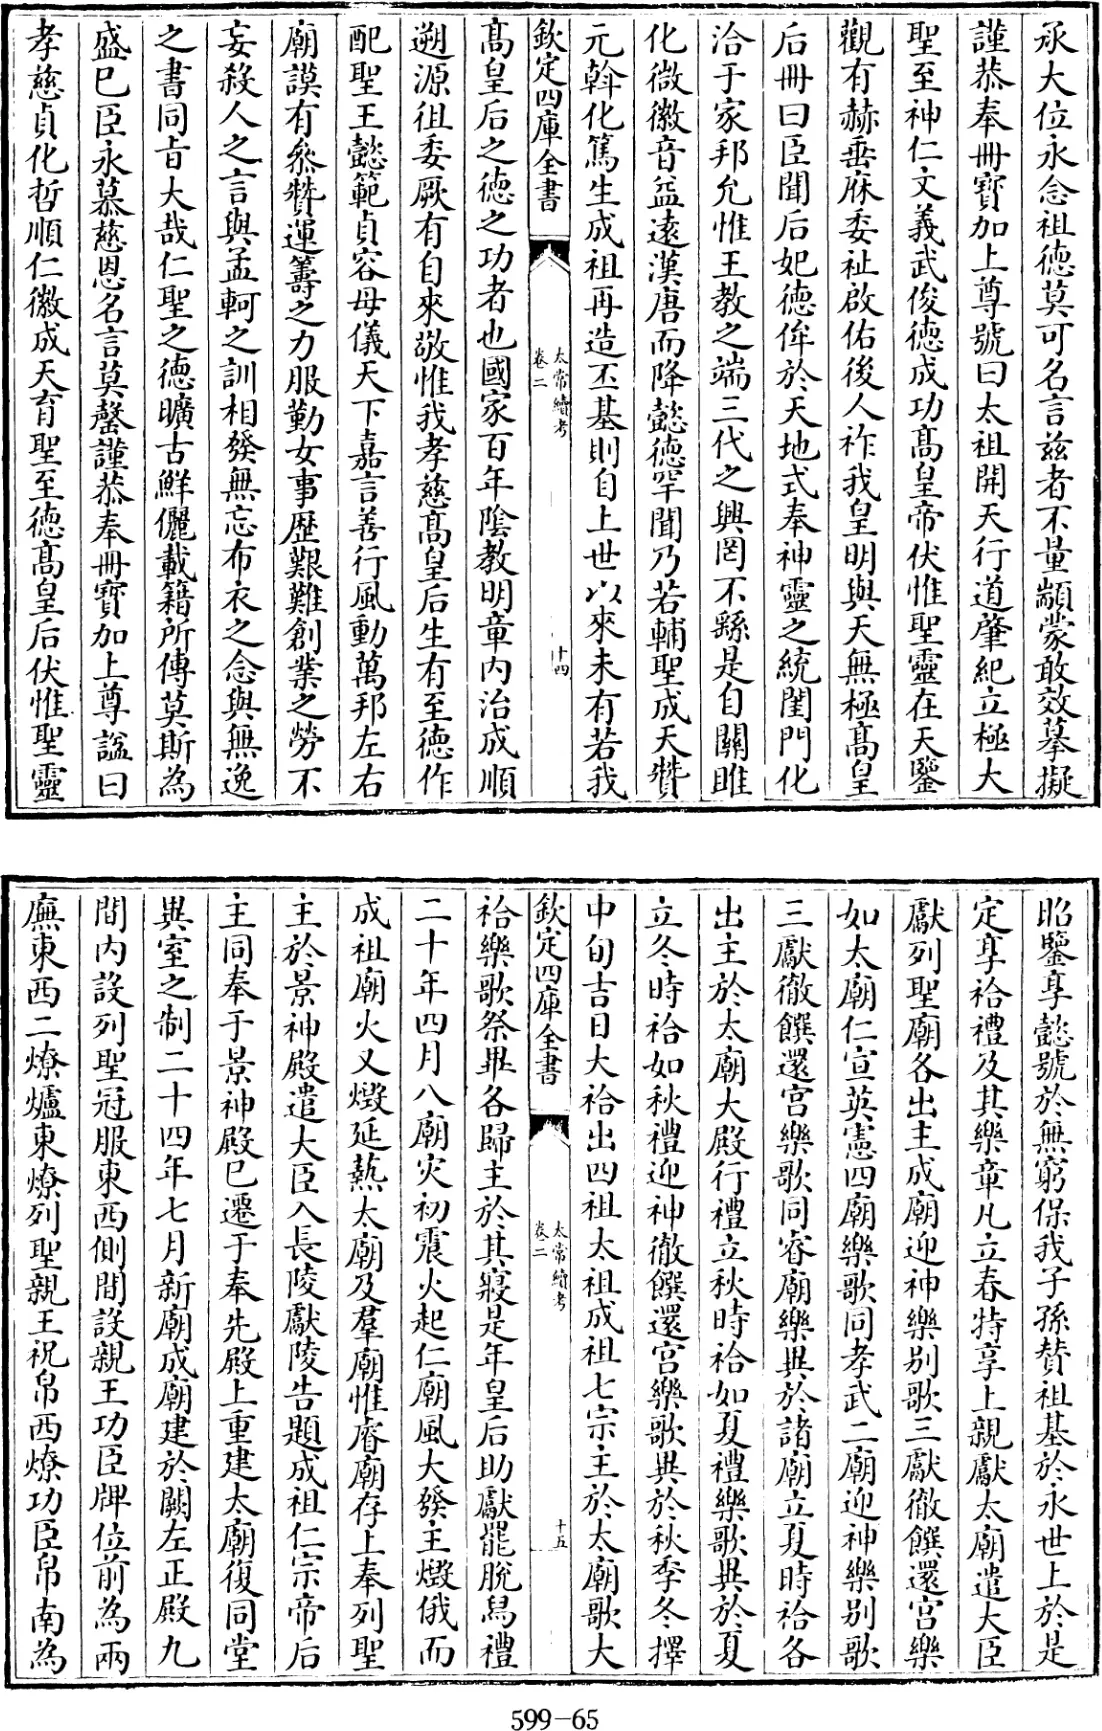 承大位永念祖徳莫可名言兹者不量顓蒙敢效摹擬
謹恭奉冊寳加上尊號曰太祖開天行道肇紀立極大
聖至神仁文義武俊徳成功髙皇帝伏惟聖靈在天鑒
觀有赫垂庥委祉啟佑後人祚我皇明與天無極髙皇
后冊曰臣聞后妃徳侔於天地式奉神靈之統閨門化
洽于家邦允惟王教之端三代之興罔不繇是自關雎
化微徽音益逺漢唐而降懿徳罕聞乃若輔聖成天贊
元斡化篤生成祖再造丕基則自上世以來未有若我
欽定四庫全書
太常續考
卷二
十四
髙皇后之徳之功者也國家百年隂教明章内治成順
遡源徂委厥有自來敬惟我孝慈髙皇后生有至徳作
配聖王懿範貞容母儀天下嘉言善行風動萬邦左右
廟謨有叅贊運籌之力服勤女事歴艱難創業之勞不
妄殺人之言與孟軻之訓相發無忘布衣之念與無逸
之書同㫖大哉仁聖之徳曠古鮮儷載籍所傳莫斯為
盛已臣永慕慈恩名言莫罄謹恭奉冊寳加上尊諡曰
孝慈貞化哲順仁徽成天育聖至徳髙皇后伏惟聖靈
昭鑒享懿號於無窮保我子孫賛祖基於永世上於是
定享祫禮及其樂章凡立春特享上親獻太廟遣大臣
獻列聖廟各出主成廟迎神樂别歌三獻徹饌還宫樂
如太廟仁宣英憲四廟樂歌同孝武二廟迎神樂别歌
三獻徹饌還宫樂歌同睿廟樂異於諸廟立夏時祫各
出主於太廟大殿行禮立秋時祫如夏禮樂歌異於夏
立冬時祫如秋禮迎神徹饌還宫樂歌異於秋季冬擇
中旬吉日大祫出四祖太祖成祖七宗主於太廟歌大
欽定四庫全書
太常續考
卷二
十五
祫樂歌祭畢各歸主於其寢是年皇后助獻罷脱舄禮
二十年四月八廟灾初震火起仁廟風大發主燬俄而
成祖廟火又燬延爇太廟及羣廟惟睿廟存上奉列聖
主於景神殿遣大臣入長陵獻陵告題成祖仁宗帝后
主同奉于景神殿已遷于奉先殿上重建太廟復同堂
異室之制二十四年七月新廟成廟建於闕左正殿九
間内設列聖冠服東西側間設親王功臣牌位前為兩
廡東西二燎爐東燎列聖親王祝帛西燎功臣帛南為
599-65